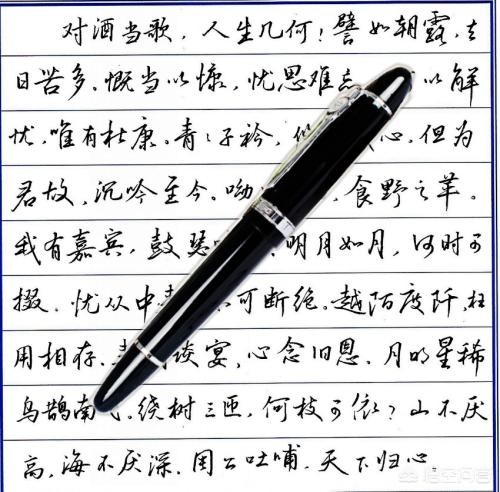 对酒当歌，人生几何！譬如朝露，去
日苦多。慨当以慷，忧思难 以解
忧，唯有杜康。青々子衿， 心，但为
君故，沉吟至今。呦 ，食野之苹。
我有嘉宾，鼓瑟 明月如月，何时可
掇，忧从中 可断绝。越陌度阡，枉
用相存。 谈宴，心念旧恩。月明星稀
乌鹊南 。绕树三匝，何枝可依？山不厌
高，海不厌深，周公吐哺，天下归心。
悟空问答